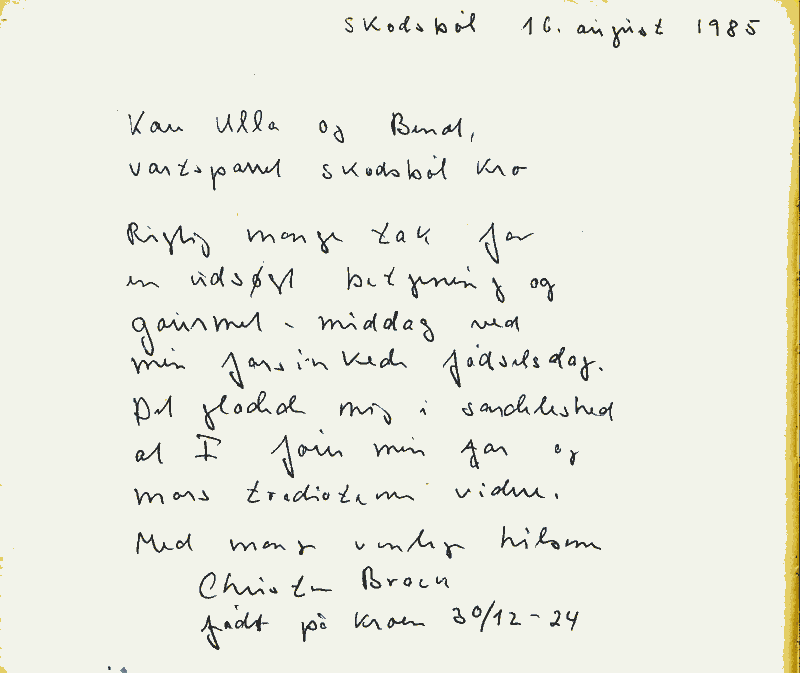 Skodsböl 16. august 1985
Kære Ulla og Bernd,
værtsparret Skodsböl Kro
Rigtig mange tak for
en udsøgt betjening og
gourmet-middag ved
min forsinkede födselsdag.
Det glædede mig i særdeleshed
at I förer min far og
mors traditioner videre.
Med mange venlige hilsener
Christen Brock
födt på kroen 30/12-24